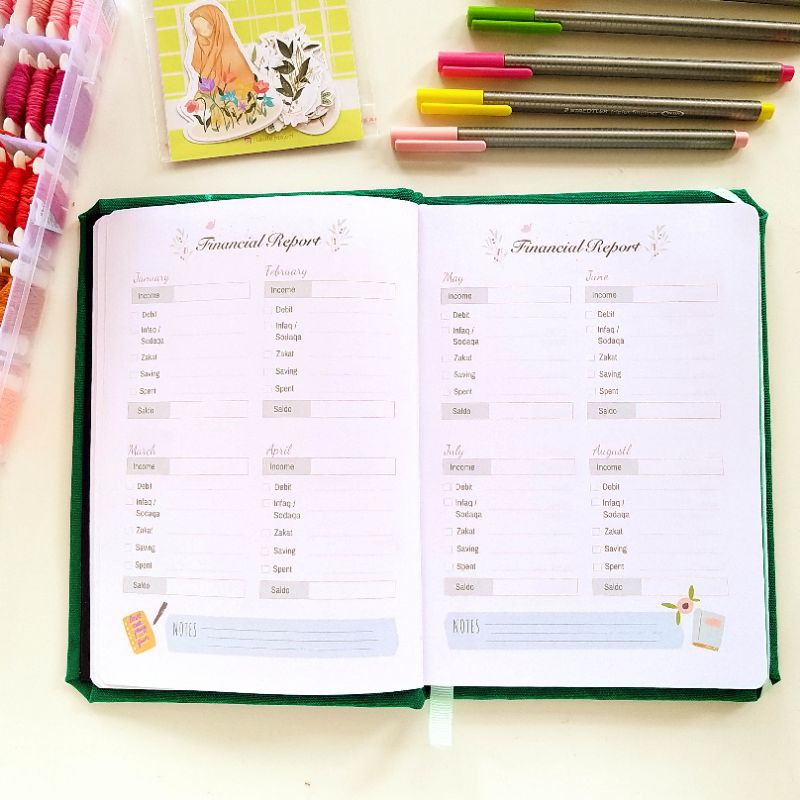 STAEDTLER triplus fineliner
Financial Report
January
Income
Debit
Infaq /
Sodaqa
Zakat
Saving
Spent
Saldo
February
Income
Debit
Infaq /
Sodaqa
Zakat
Saving
Spent
Saldo
March
Income
Debit
Infaq /
Sodaqa
Zakat
Saving
Spent
Saldo
April
Income
Debit
Infaq /
Sodaqa
Zakat
Saving
Spent
Saldo
NOTES
Financial Report
May
Income
Debit
Infaq /
Sodaqa
Zakat
Saving
Spent
Saldo
June
Income
Debit
Infaq /
Sodaqa
Zakat
Saving
Spent
Saldo
July
Income
Debit
Infaq /
Sodaqa
Zakat
Saving
Spent
Saldo
Augustl
Income
Debit
Infaq /
Sodaqa
Zakat
Saving
Spent
Saldo
NOTES